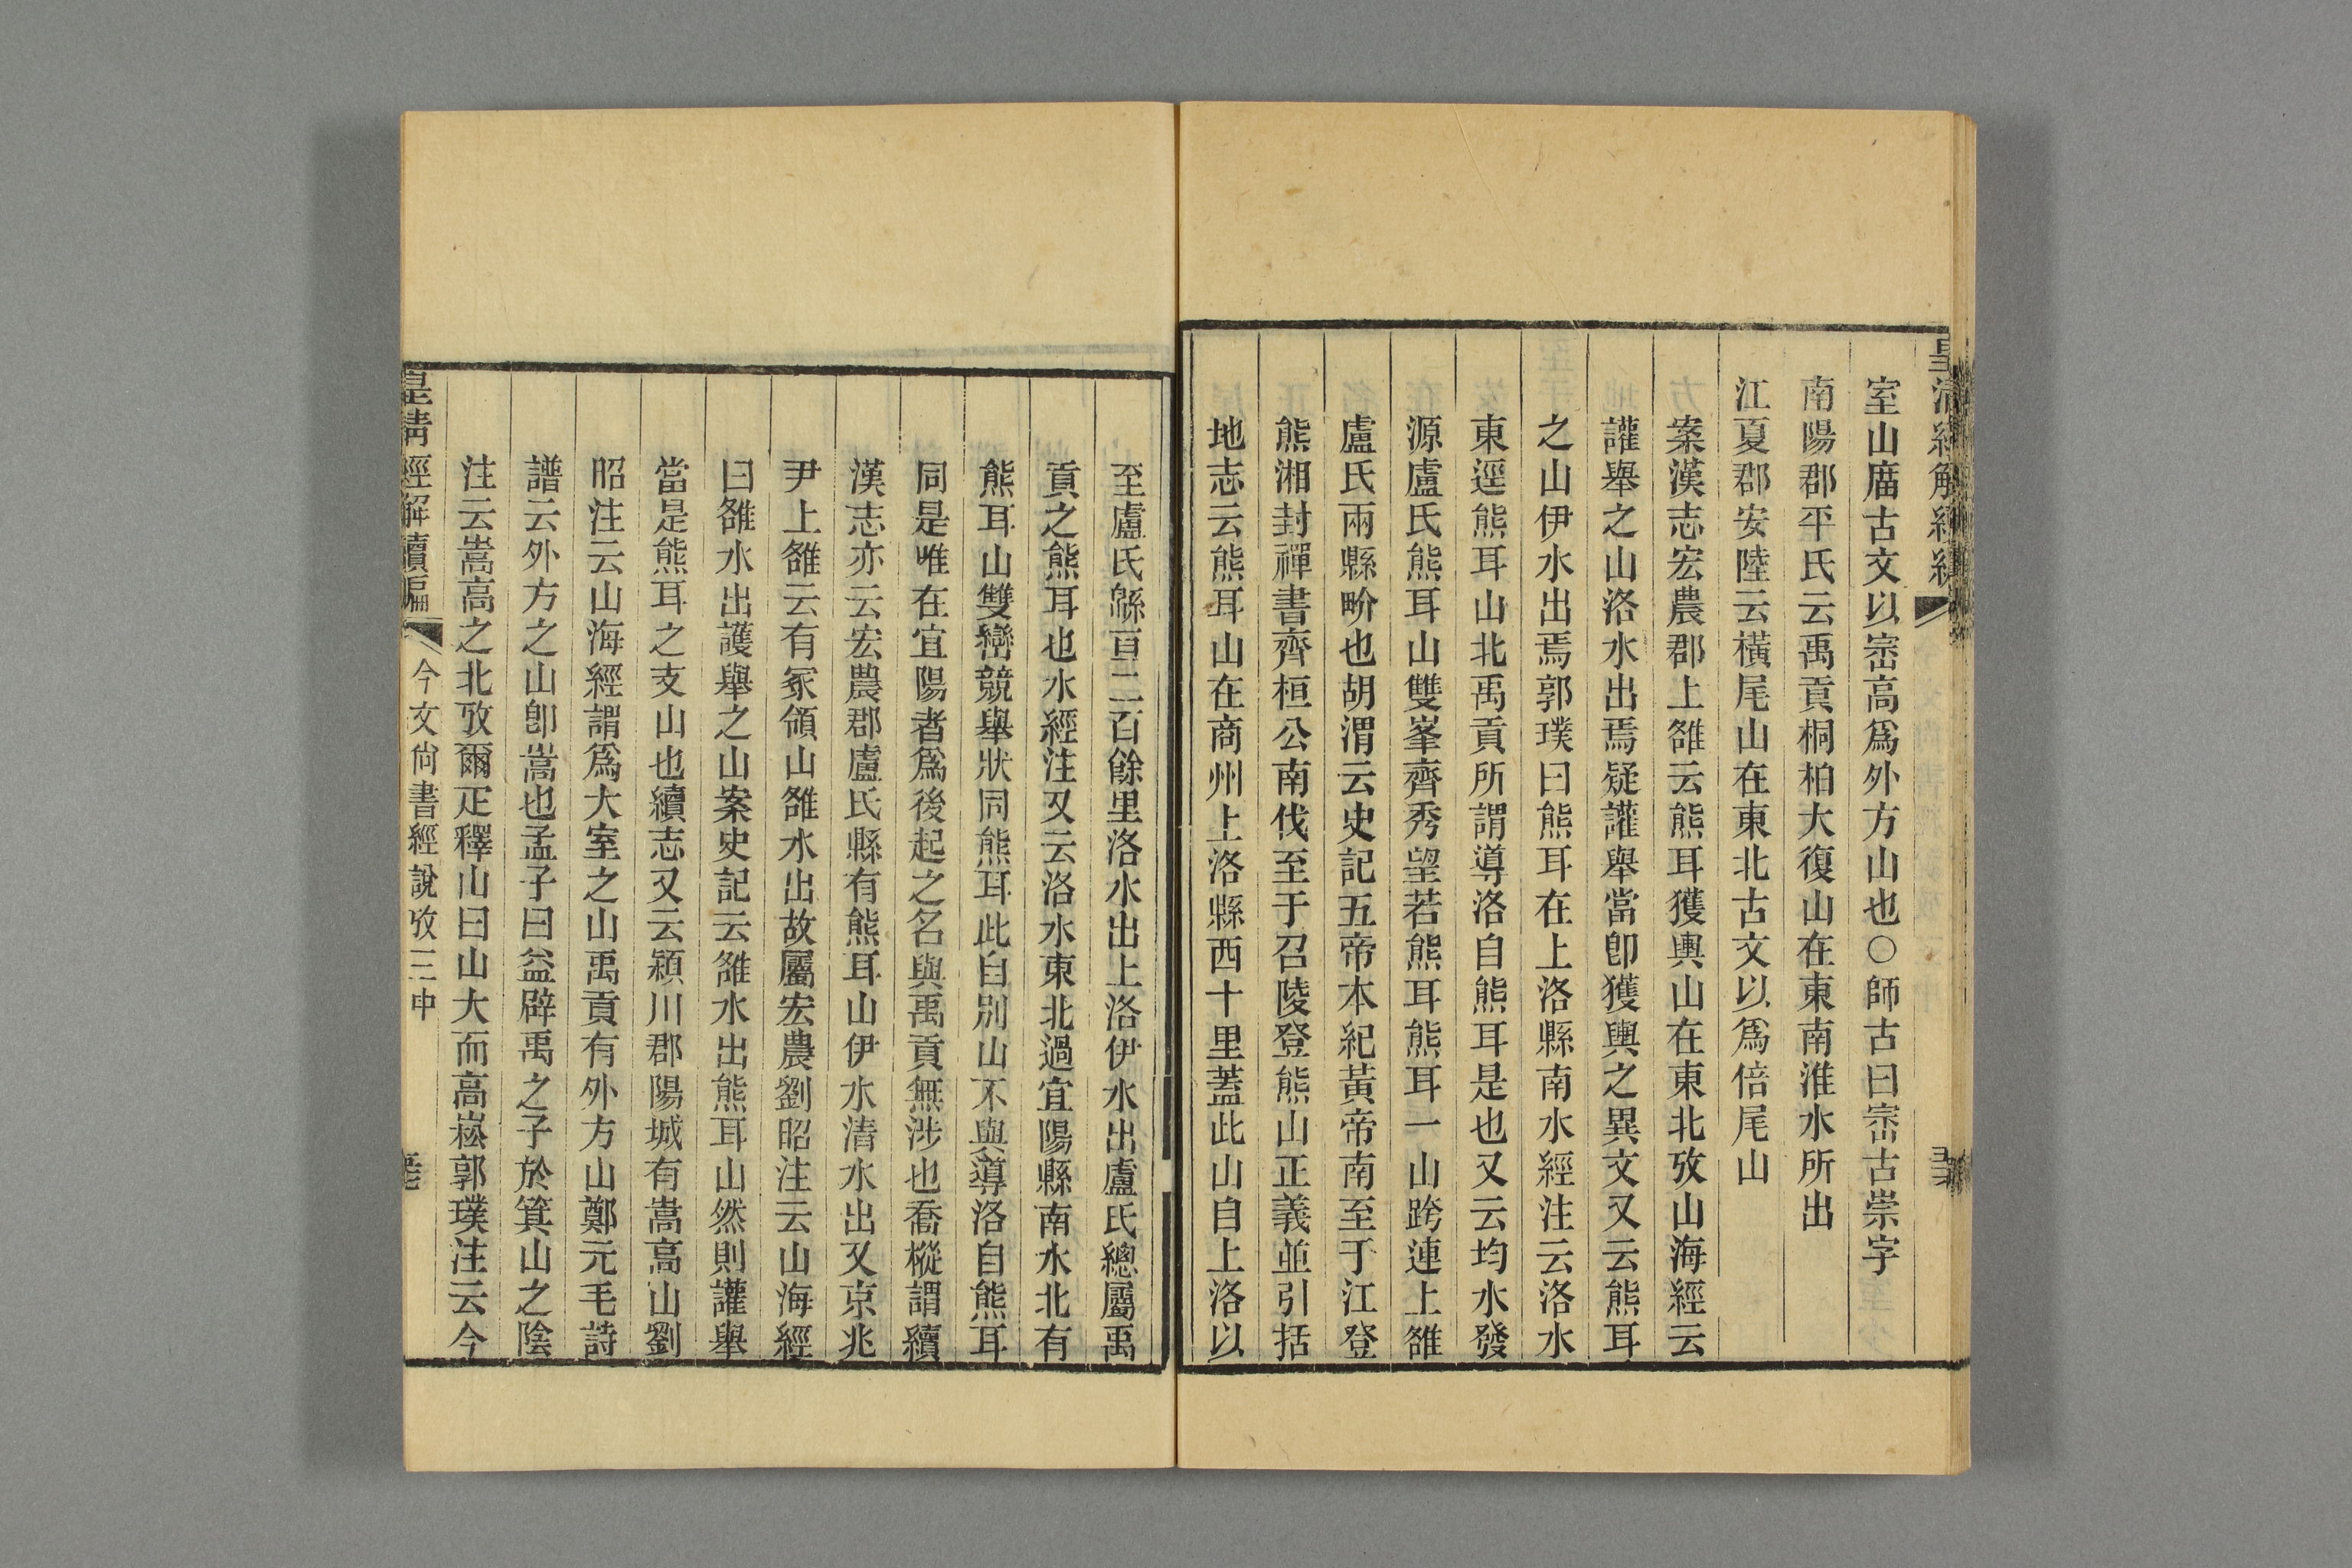 室山廟古文以崈高爲外方山也○師古曰崈古崇字
南陽郡平氏云禹貢桐柏大復山在東南淮水所出
江夏郡安陸云橫尾山在東北古文以爲倍尾山
案漢志宏農郡上雒云熊耳獲輿山在東北攷山海經云
讙舉之山洛水出焉疑讙舉當卽獲輿之異文又云熊耳
之山伊水出焉郭璞曰熊耳在上洛縣南水經注云洛水
東逕熊耳山北禹貢所謂導洛自熊耳是也又云均水發
源盧氏熊耳山雙峯齊秀望若熊耳熊耳一山跨連上雒
盧氏兩縣畍也胡渭云史記五帝本紀黃帝南至于江登
熊湘封禪書齊桓公南伐至于召陵登熊山正義並引括
地志云熊耳山在商州上洛縣西十里蓋此山自上洛以
至盧氏縣百二百餘里洛水出上洛伊水出盧氏總屬禹
貢之熊耳也水經注又云洛水東北過宜陽縣南水北有
熊耳山雙巒競舉狀同熊耳此自別山不與導洛自熊耳
同是唯在宜陽者爲後起之名與禹貢無涉也喬樅謂續
漢志亦云宏農郡盧氏縣有熊耳山伊水清水出又京兆
尹上雒云有冢領山雒水出故屬宏農劉昭注云山海經
曰雒水出護舉之山案史記云雒水出熊耳山然則讙舉
當是熊耳之支山也續志又云潁川郡陽城有嵩高山劉
昭注云山海經謂爲大室之山禹貢有外方山鄭元毛詩
譜云外方之山卽嵩也孟子曰益辟禹之子於箕山之陰
注云嵩高之北攷爾疋釋山曰山大而高崧郭璞注云今
皇清經解續編
今文尚書經說攷三中